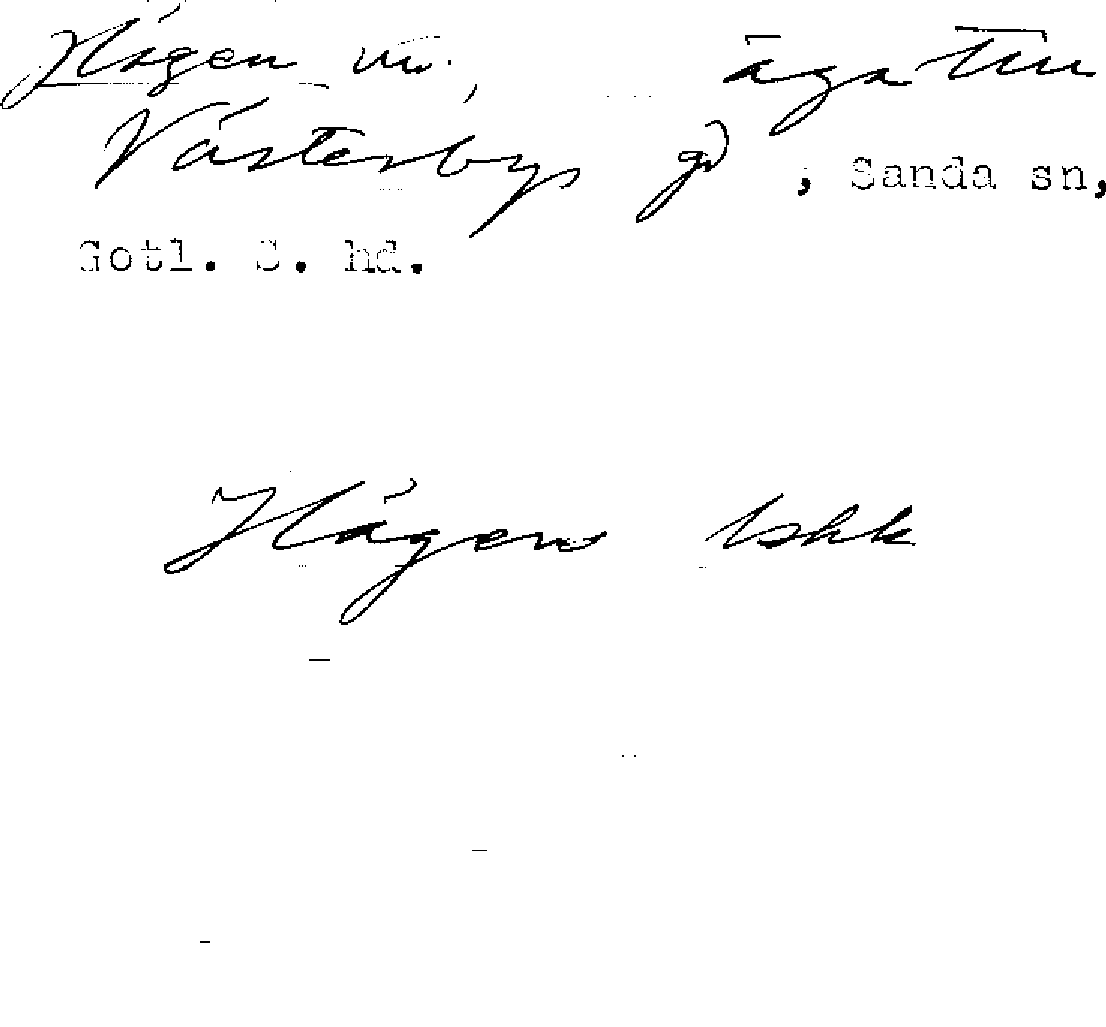 Hägen m., äga till
Västerbys gd, Sanda sn,
Gotl. S. hd.
Hägen